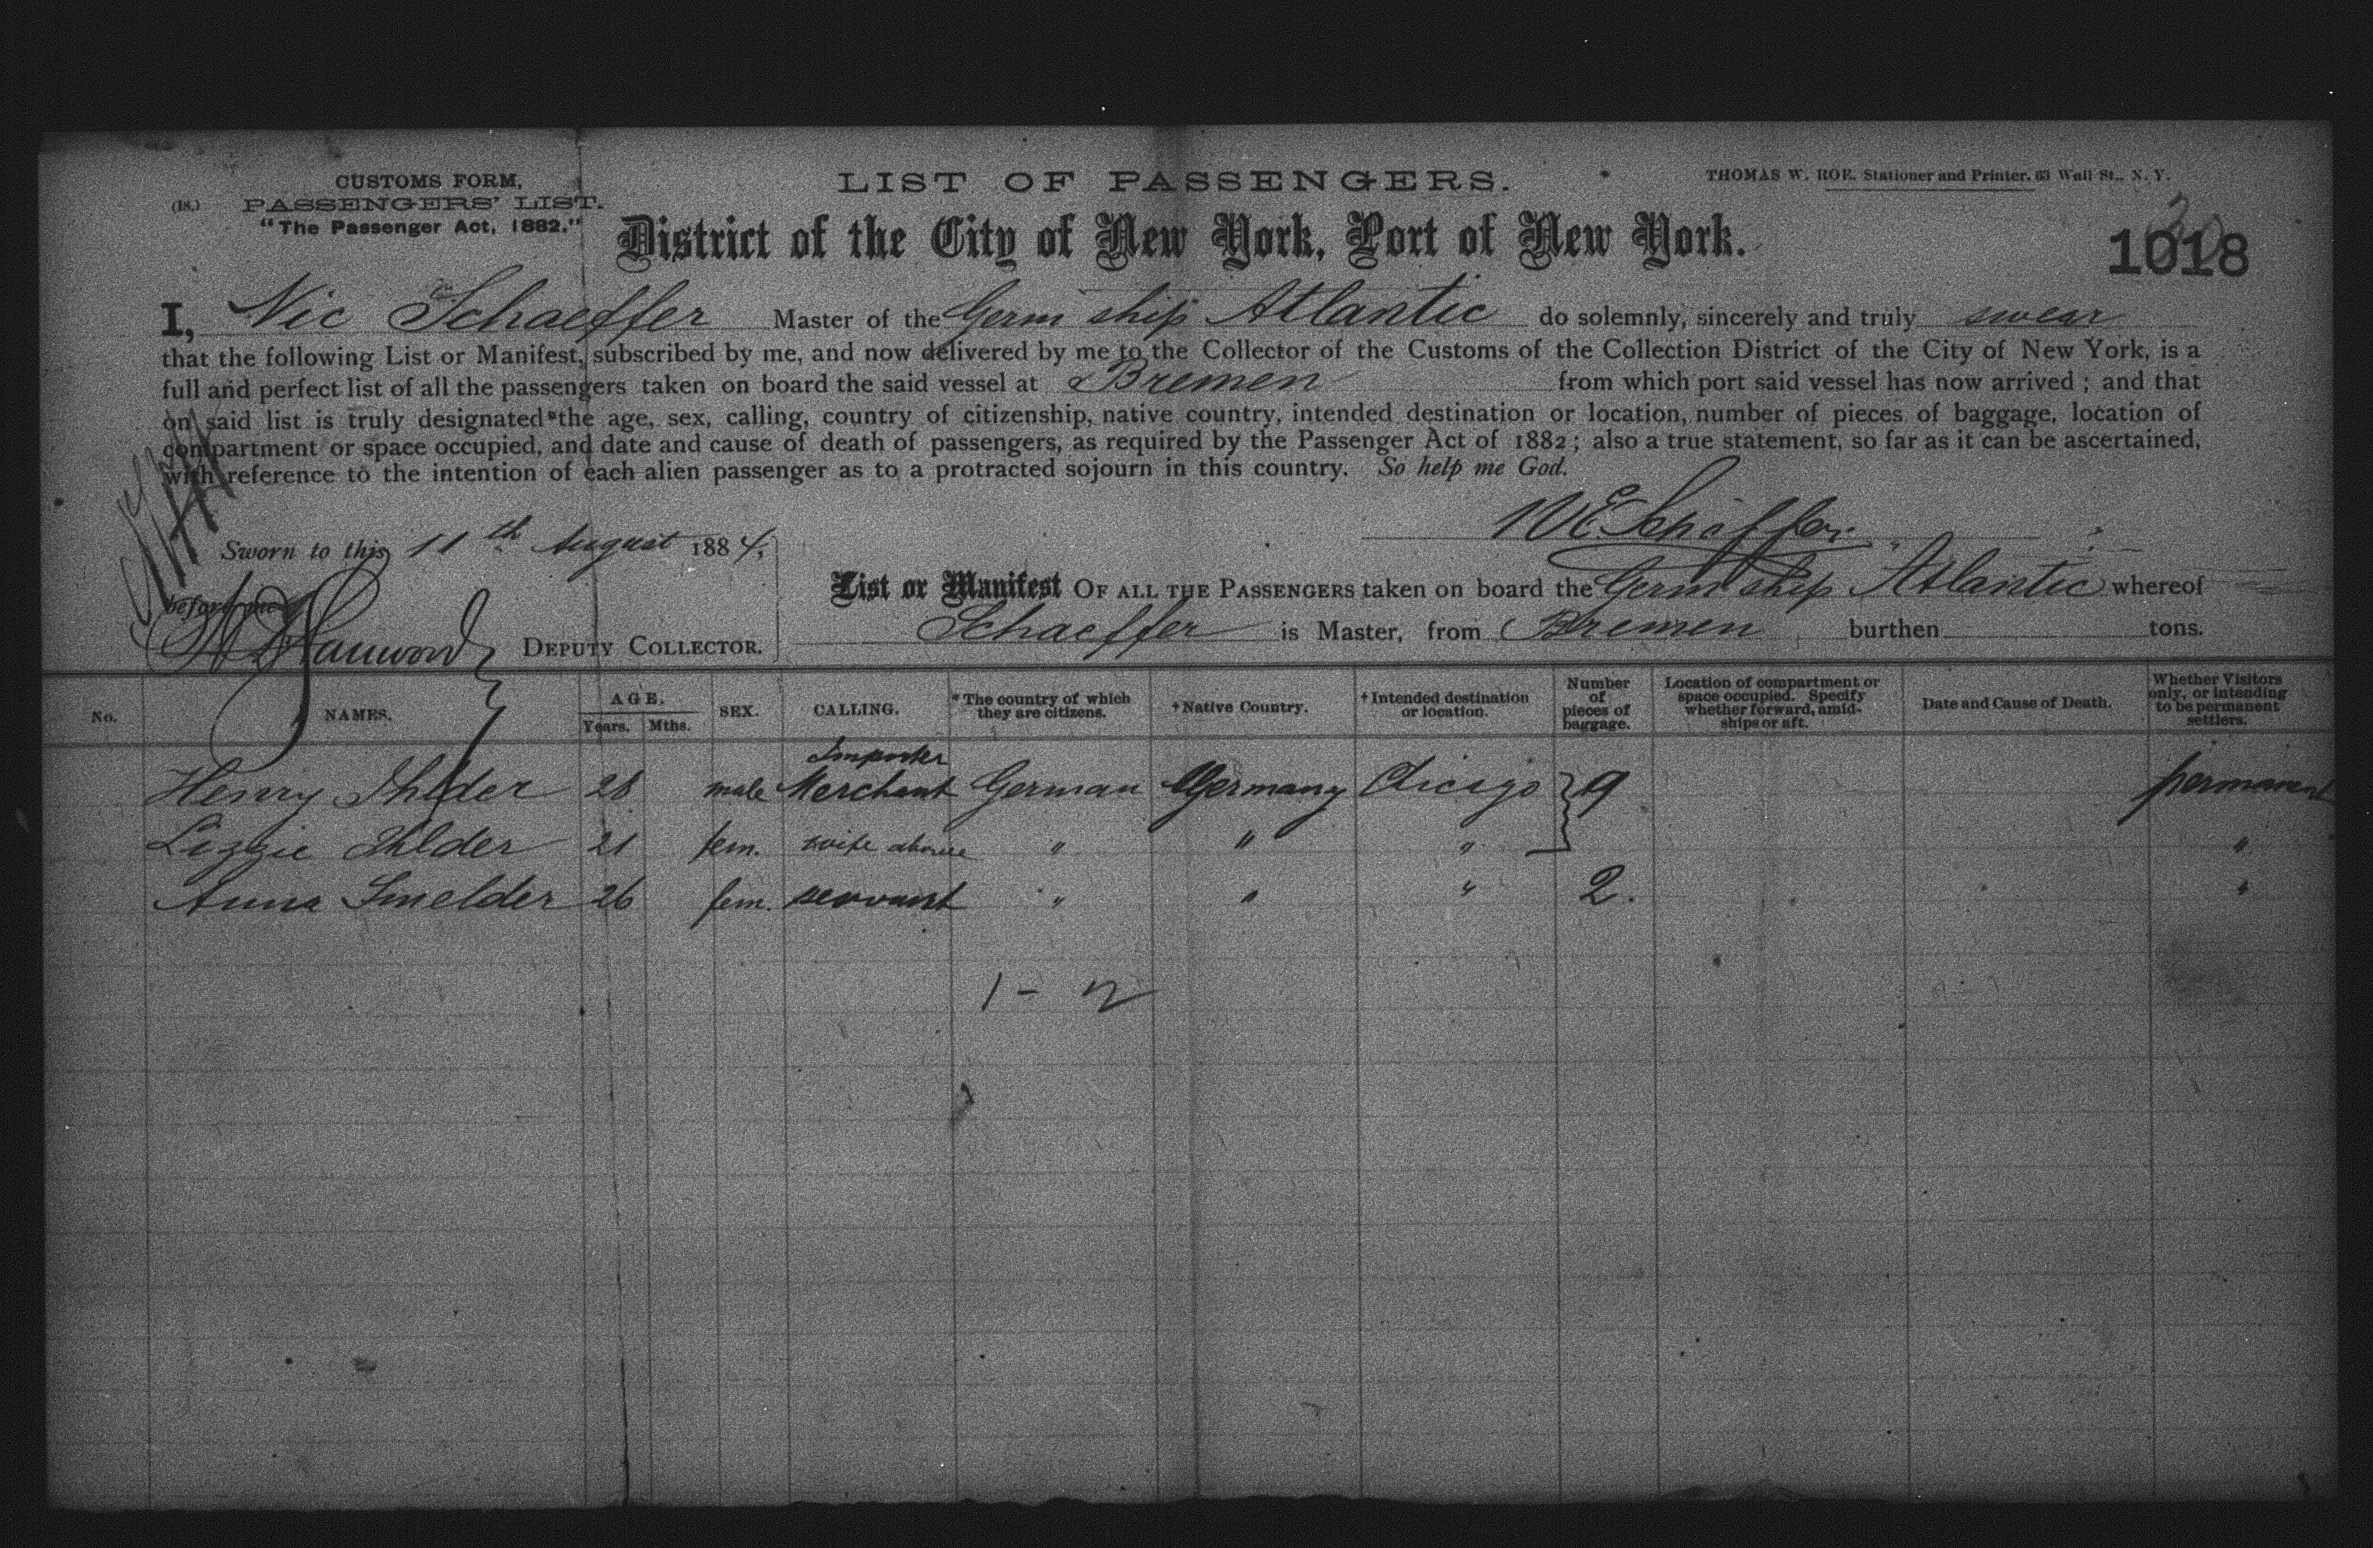 CUSTOMS FORM,
(18.) PASSENGERS' LIST.
"The Passenger Act, 1882."
LIST OF PASSENGERS.
THOMAS W. ROE, Stationer and Printer, 63 Wall St., N. Y.
District of the City of New York, Port of New York.
1018
I, Nic Schaeffer Master of the Germ ship Atlantic do solemnly, sincerely and truly swear
that the following List or Manifest, subscribed by me, and now delivered by me to the Collector of the Customs of the Collection District of the City of New York, is a
full and perfect list of all the passengers taken on board the said vessel at Bremen from which port said vessel has now arrived ; and that
on said list is truly designated the age, sex, calling, country of citizenship, native country, intended destination or location, number of pieces of baggage, location of
compartment or space occupied, and date and cause of death of passengers, as required by the Passenger Act of 1882 ; also a true statement, so far as it can be ascertained,
with reference to the intention of each alien passenger as to a protracted sojourn in this country. So help me God.
Sworn to this 11th August 1884,
before me
DEPUTY COLLECTOR.
List or Manifest OF ALL THE PASSENGERS taken on board the Germ ship Atlantic whereof
Schaeffer is Master, from Bremen burthen tons.
No. NAMES. AGE. Years. Mths. SEX. CALLING. * The country of which they are citizens. † Native Country. † Intended destination or location. Number of pieces of baggage. Location of compartment or space occupied. Specify whether forward, amidships or aft. Date and Cause of Death. Whether Visitors only, or intending to be permanent settlers.
Importer
Henry 28 male Merchant German Germany Chicago 9 permanent
Lizzie 21 fem. wife above " " " "
Anna Smelder 26 fem. servant " " " 2. "
1 -